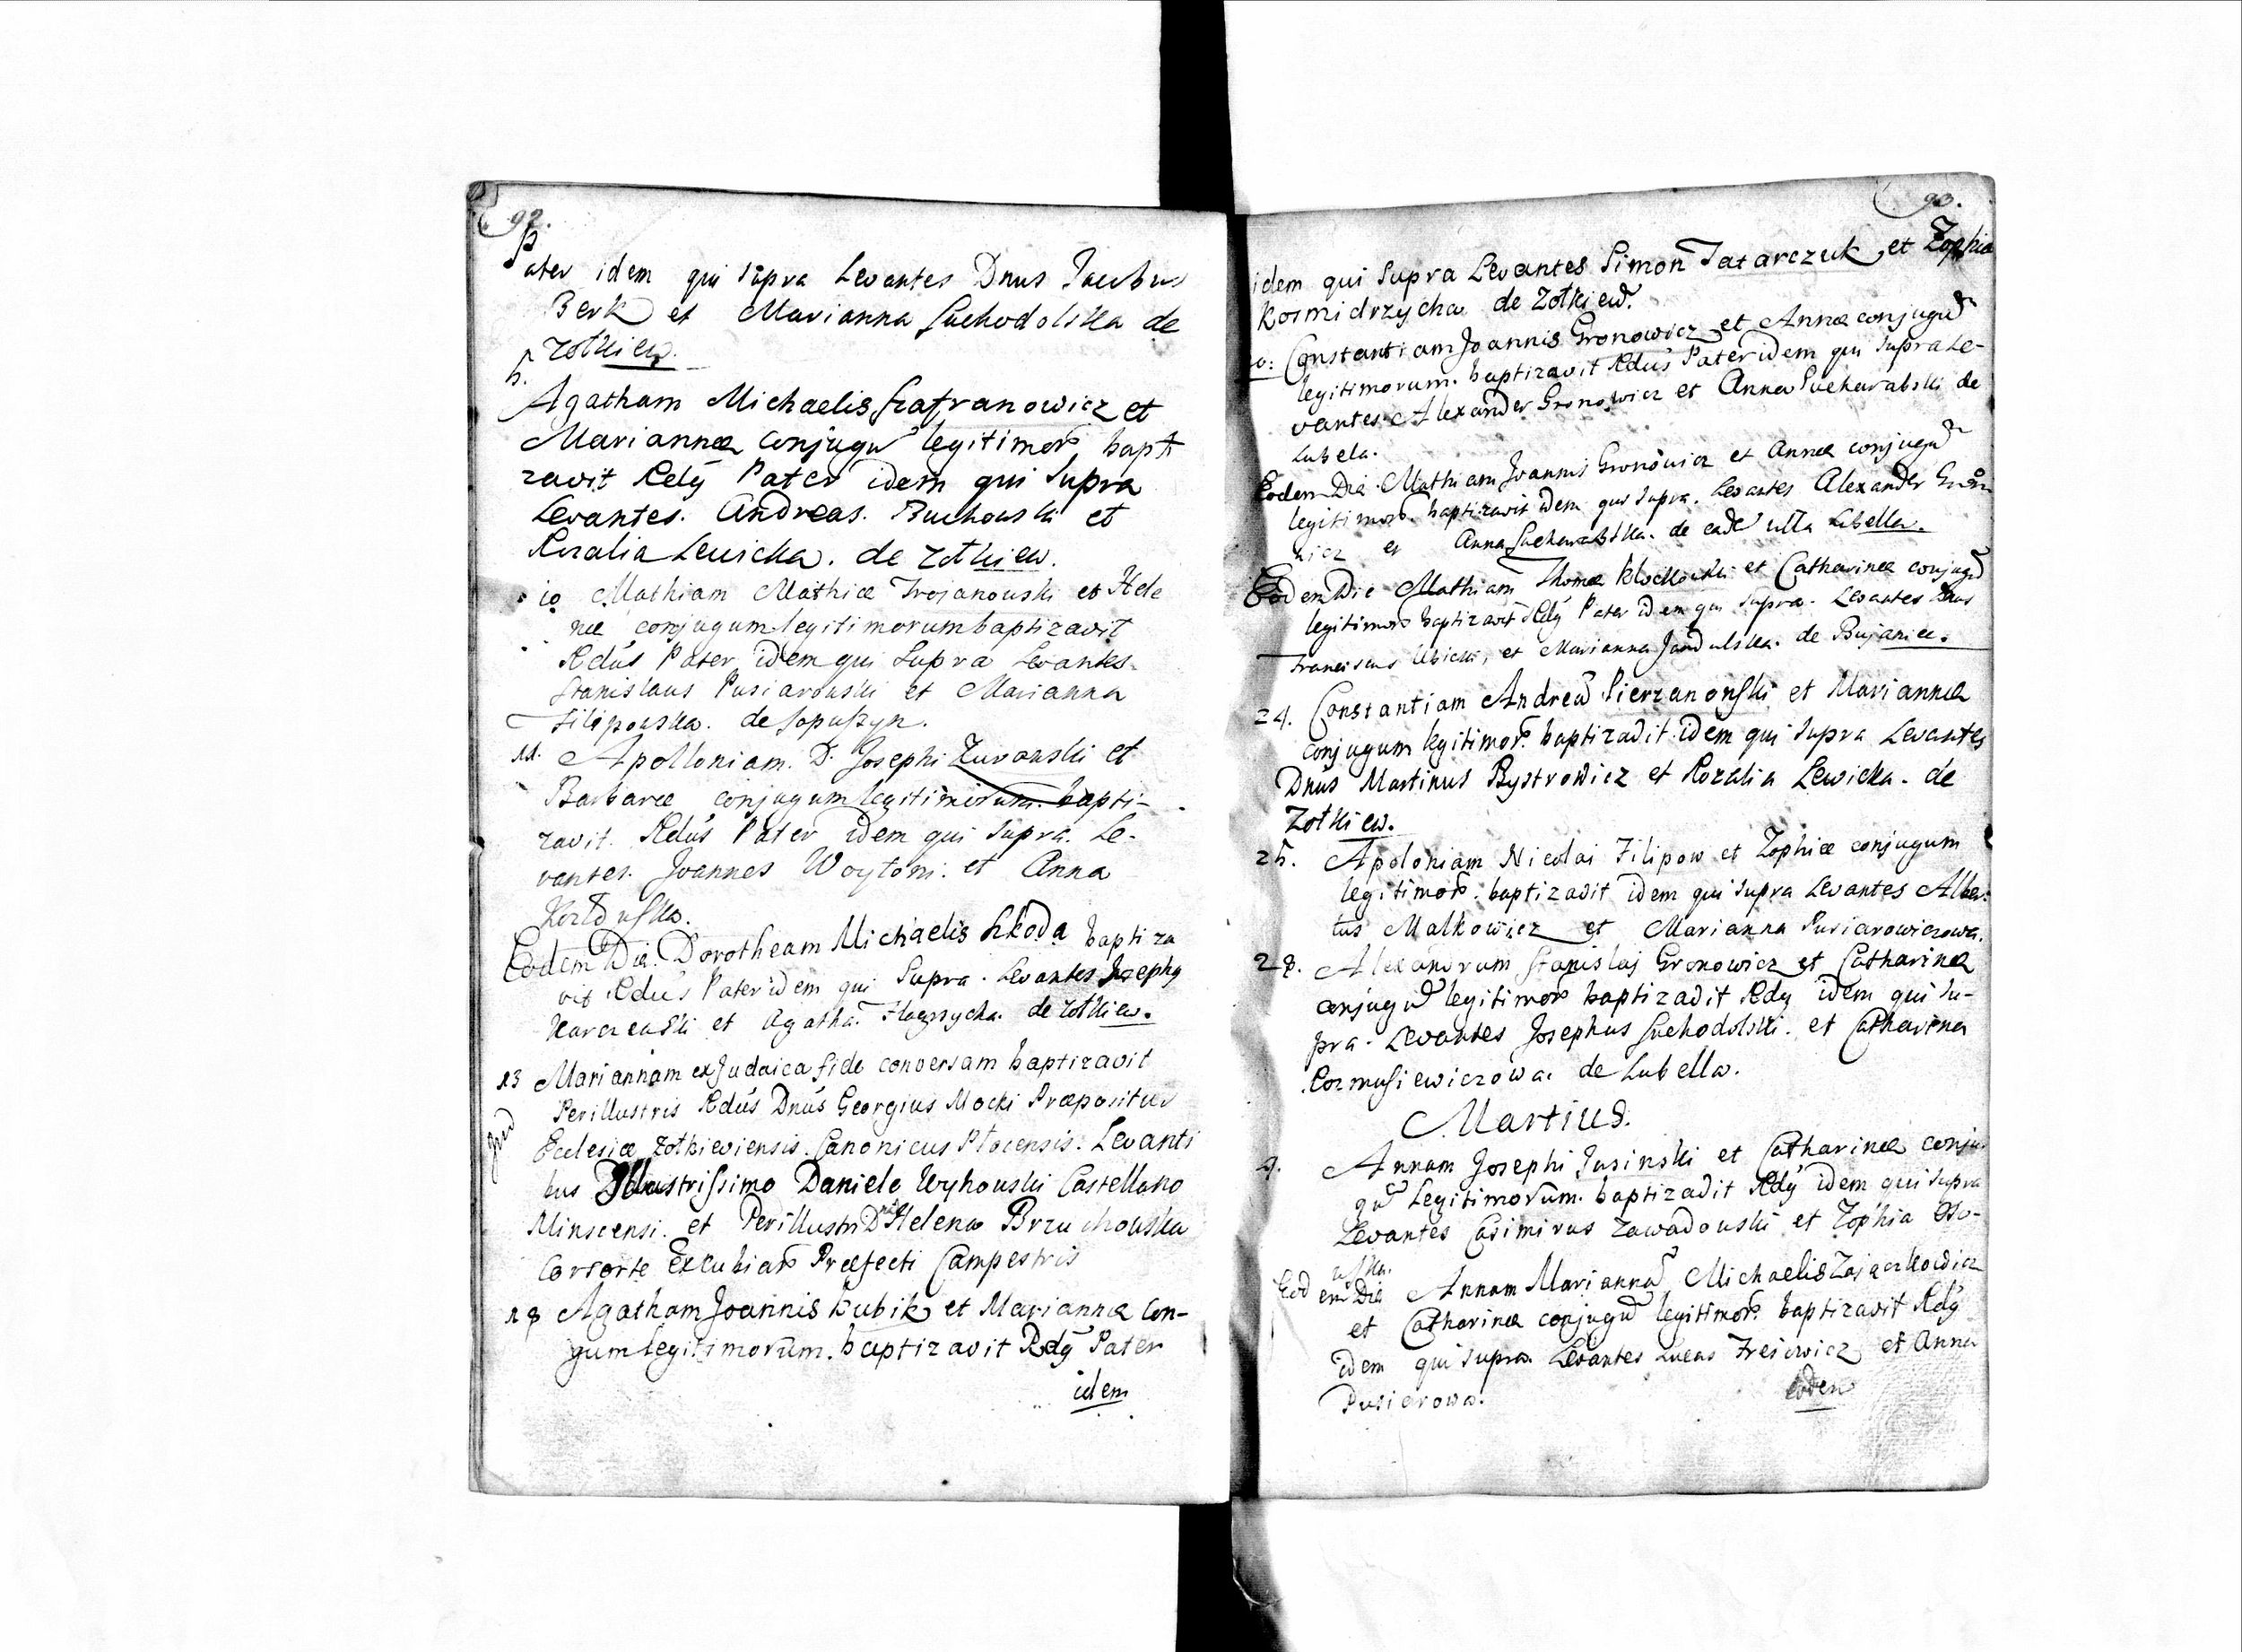 92.
Pater idem qui supra Levantes Dnus Jacobus
Berk et Marianna Suchodolska de
Zołkiew.
5.
Agatham Michaelis Szafranowicz et
Mariannæ conjugu legitimor bapti
zavit Rdy Pater idem qui Supra
Levantes. Andreas. Buchowski et
Rozalia Lewicka. de Zołkiew.
10 Mathiam Mathiæ Trojanowski et Hele
næ conjugum legitimorum baptizavit
Rdus Pater idem qui Supra Levantes
Stanislaus Pusiarowski et Marianna
Filipowska. de Sopuszyn.
11. Apolloniam. D. Josephi Zurowski et
Barbaræ conjugum legitimorum. bapti-
zavit. Rdus Pater idem qui supra. Le-
vantes. Joannes Woytoni. et Anna
Eodem Die. Dorotheam Michaelis Szkoda baptiza
vit Rdus Pater idem qui Supra. Levantes Josephy
et Agatha. de Zołkiew.
13 Mariannam ex Judaica fide conversam baptizavit
Perillustris Rdus Dnus Georgius Mocki Præpositus
Ecclesiæ Zołkieviensis. Canonicus Płocensis. Levanti
bus Illustrissimo Daniele Wyhowski Castellano
Minscensi. et Perillustri Dna Helena Brzuchowska
Consorte Excubiar Præfecti Campestris
18 Agatham Joannis Kubik et Mariannæ Con-
gum legitimorum. baptizavit Rdy Pater
idem
93.
idem qui supra Levantes Simon Tatarczuk et Zophia
Kosmidrzycha de Zołkiew.
Constantiam Joannis Gronowicz et Annæ conjugu
legitimorum. baptizavit Rdus Pater idem qui supra Le-
vantes Alexander Gronowicz et Anna Sucharabski de
Lubela.
Eodem Die. Mathiam Joannis Gronowicz et Annæ conjugu
legitimor. baptizavit idem qui supra. Levantes Alexander Grono
wicz et Anna Sucharabska. de eade villa Lubella.
Eodem Die Mathiam Thomæ Kłodkowski et Catharinæ conjugu
legitimor baptizavit Rdy Pater idem qui supra. Levantes Dnus
Franciscus Ubicki, et Marianna Jandulska. de Bujanice.
24. Constantiam Andreæ Sierzanowski et Mariannæ
conjugum legitimor. baptizavit idem qui supra Levantes
Dnus Martinus Bystrowicz et Rozalia Lewicka. de
Zołkiew.
25. Apoloniam Nicolai Filipow et Zophiæ conjugum
legitimor. baptizavit idem qui supra Levantes Alber-
tus Malkowicz et Marianna Pusiarowiczowa.
28. Alexandrum Stanislaj Gronowicz et Catharinæ
conjugu legitimor baptizavit Rdy idem qui su-
pra. Levantes Josephus Suchodolski. et Catharina
Cozmusiewiczowa. de Lubella.
Martius.
4. Annam Josephi Jusinski et Catharinæ conju
gu Legitimorum. baptizavit Rdy idem qui supra
Levantes Casimirus Zawadowski et Zophia Oso-
wska.
Eodem Die Annam Marianna Michaelis Zajączkowicz
et Catharinæ conjugu legitimor. baptizavit Rdy
idem qui supra. Levantes Lucas et Anna
Pusiarowa.
Eodem